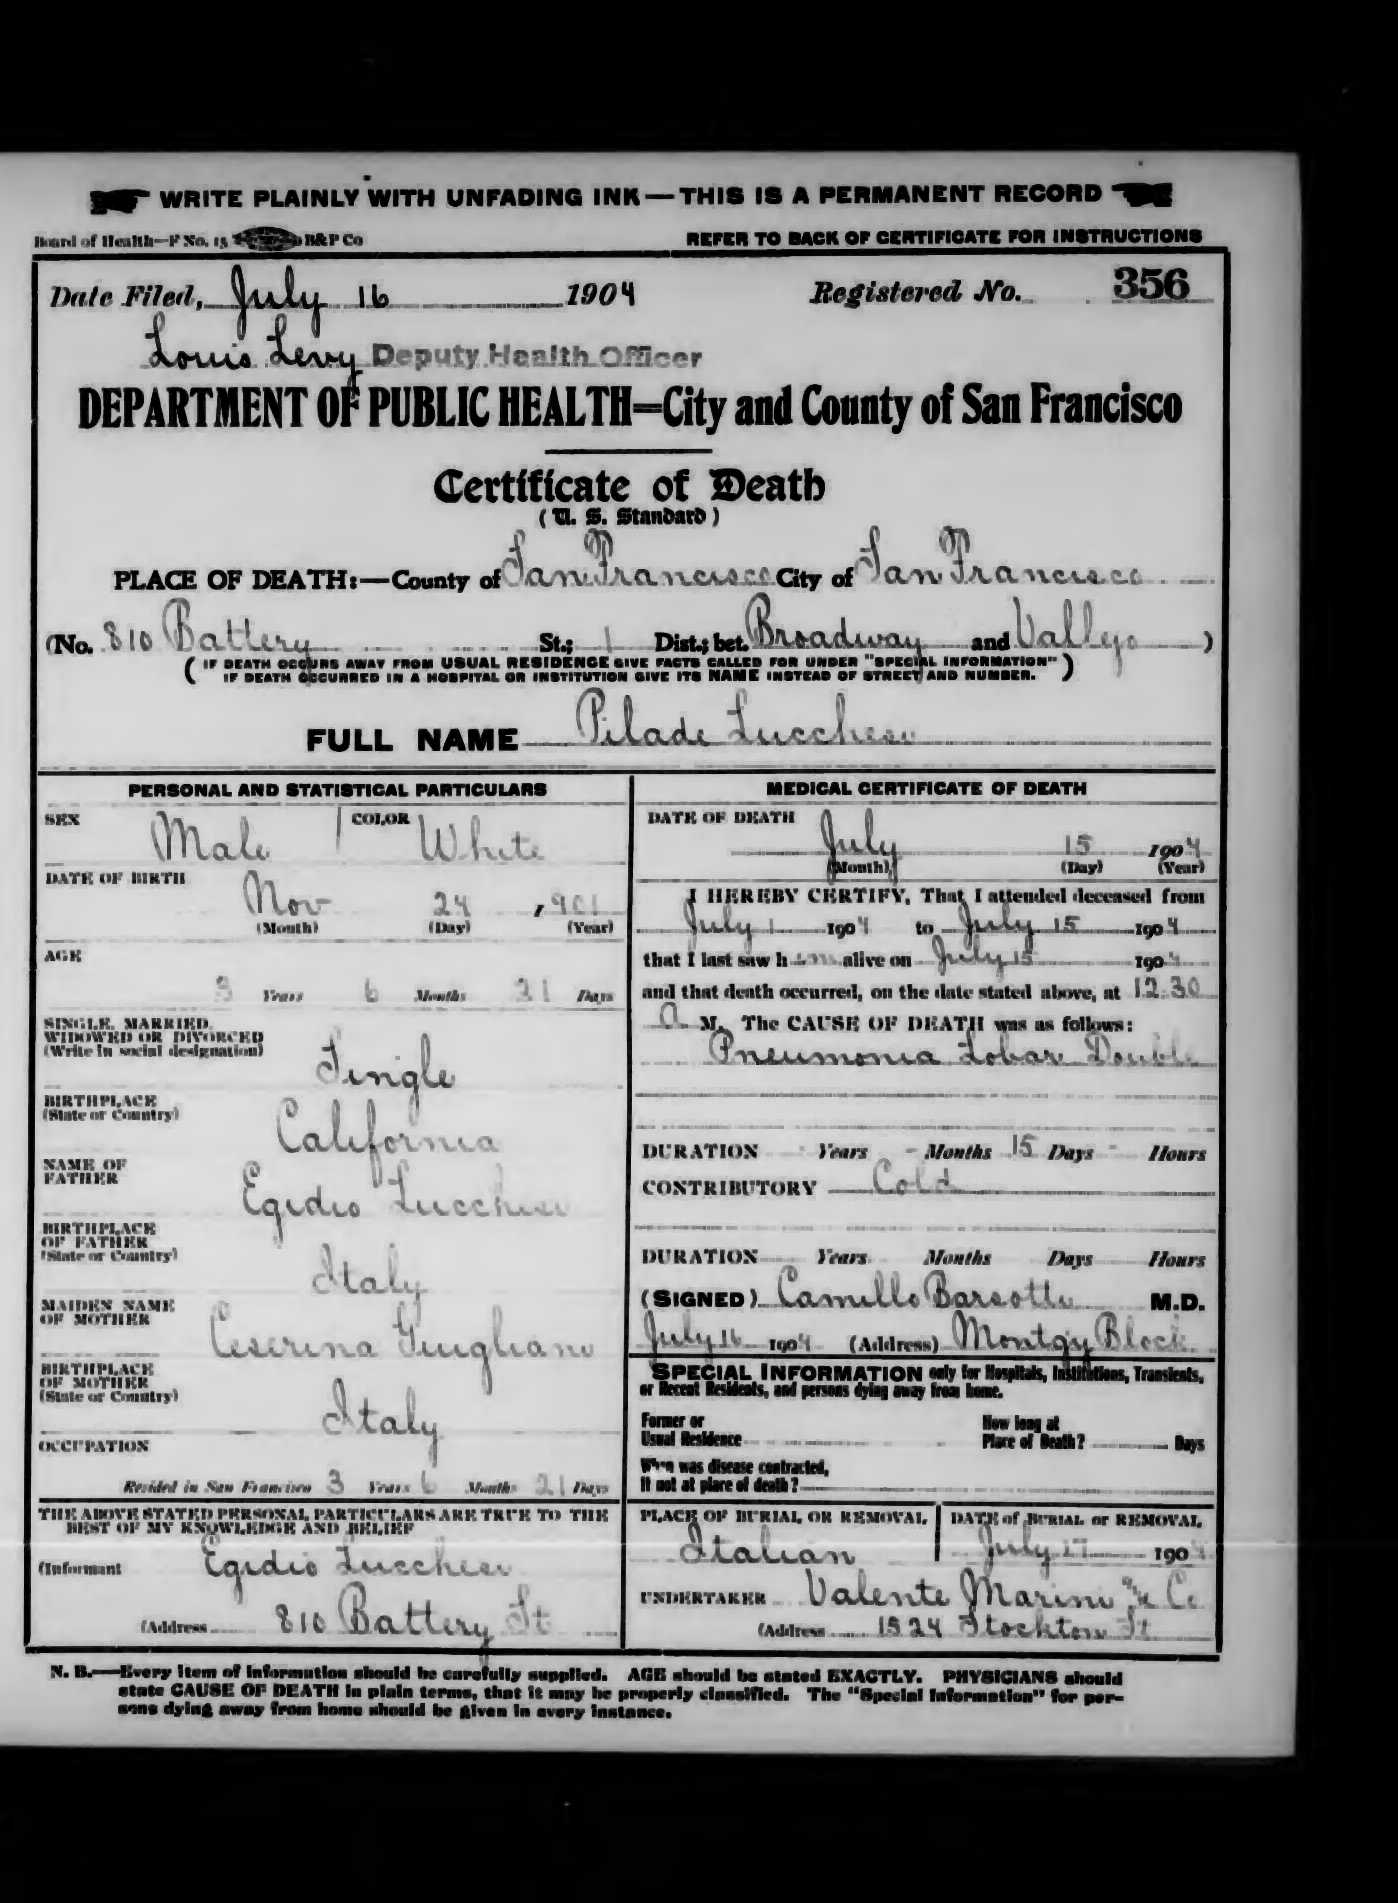 WRITE PLAINLY WITH UNFADING INK — THIS IS A PERMANENT RECORD
Board of Health—F No. 15 B&P Co REFER TO BACK OF CERTIFICATE FOR INSTRUCTIONS
Date Filed, July 16 1904 Registered No. 356
Louis Levy Deputy Health Officer
DEPARTMENT OF PUBLIC HEALTH=City and County of San Francisco
Certificate of Death
(U. S. Standard)
PLACE OF DEATH:—County of San Francisco City of San Francisco
(No. 810 Battery St.; 1 Dist.; bet. Broadway and Vallejo )
( IF DEATH OCCURS AWAY FROM USUAL RESIDENCE GIVE FACTS CALLED FOR UNDER "SPECIAL INFORMATION" )
IF DEATH OCCURRED IN A HOSPITAL OR INSTITUTION GIVE ITS NAME INSTEAD OF STREET AND NUMBER.
FULL NAME Pilade Lucchesi
PERSONAL AND STATISTICAL PARTICULARS
SEX Male COLOR White
DATE OF BIRTH
Nov 24 , 901
(Month) (Day) (Year)
AGE
3 Years 6 Months 21 Days
SINGLE, MARRIED,
WIDOWED OR DIVORCED
(Write in social designation)
Single
BIRTHPLACE
(State or Country)
California
NAME OF
FATHER
Egidio Lucchesi
BIRTHPLACE
OF FATHER
(State or Country)
Italy
MAIDEN NAME
OF MOTHER
Ceserina Giugliani
BIRTHPLACE
OF MOTHER
(State or Country)
Italy
OCCUPATION
Resided in San Francisco 3 Years 6 Months 21 Days
THE ABOVE STATED PERSONAL PARTICULARS ARE TRUE TO THE
BEST OF MY KNOWLEDGE AND BELIEF
(Informant Egidio Lucchesi
(Address 810 Battery St
MEDICAL CERTIFICATE OF DEATH
DATE OF DEATH
July 15 1904
(Month) (Day) (Year)
I HEREBY CERTIFY, That I attended deceased from
July 1 1904 to July 15 1904
that I last saw him alive on July 15 1904
and that death occurred, on the date stated above, at 12.30
A M. The CAUSE OF DEATH was as follows:
Pneumonia Lobar Double
DURATION - Years - Months 15 Days - Hours
CONTRIBUTORY Cold
DURATION Years Months Days Hours
(SIGNED) Camillo Barsotti M.D.
July 16 1904 (Address) Montgy Block
SPECIAL INFORMATION only for Hospitals, Institutions, Transients,
or Recent Residents, and persons dying away from home.
Former or
Usual Residence
How long at
Place of Death? Days
When was disease contracted,
If not at place of death?
PLACE OF BURIAL OR REMOVAL
Italian
DATE of BURIAL or REMOVAL
July 17 1904
UNDERTAKER Valente Marini & Co
(Address 1524 Stockton St
N. B.—Every item of information should be carefully supplied. AGE should be stated EXACTLY. PHYSICIANS should
state CAUSE OF DEATH in plain terms, that it may be properly classified. The "Special Information" for per-
sons dying away from home should be given in every instance.